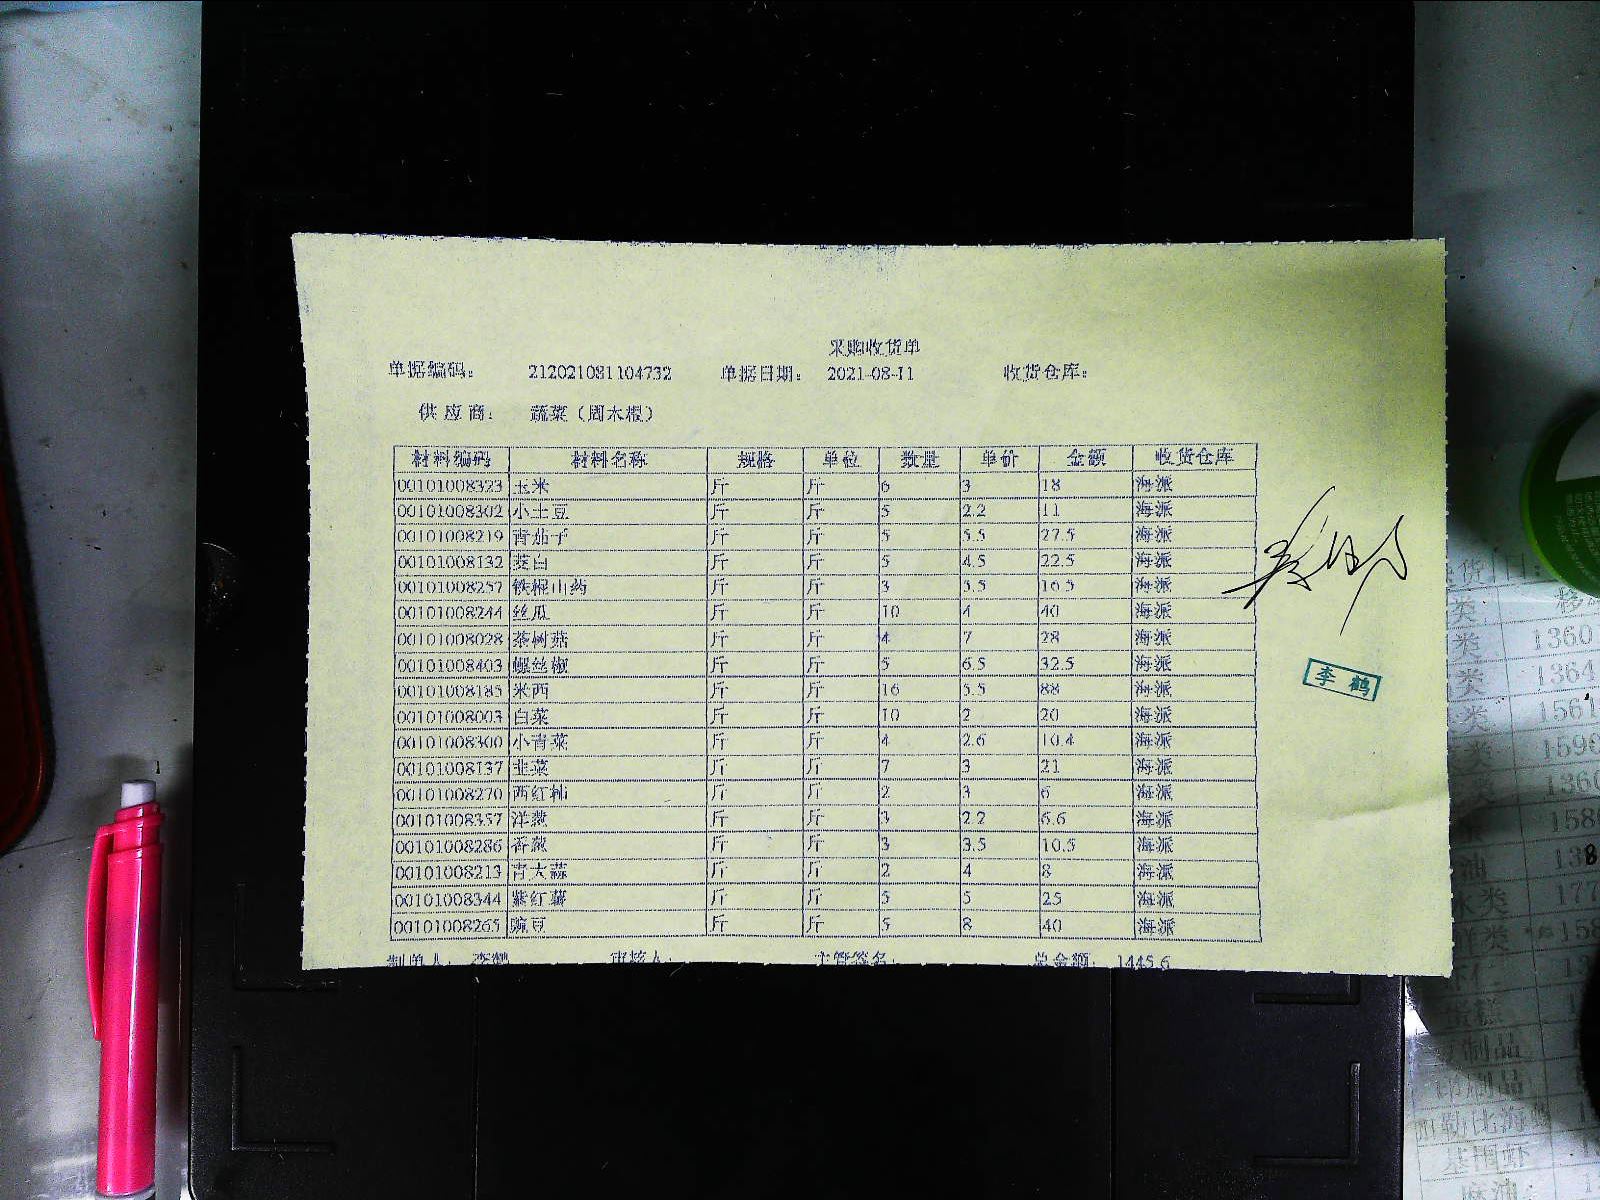 采购收货单
单据编码: 212021081104732 单据日期: 2021-08-11 收货仓库:
供应商: 蔬菜(周木根)
材料编码 材料名称 规格 单位 数量 单价 金额 收货仓库
00101008323 玉米 斤 斤 6 3 18 海派
00101008302 小土豆 斤 斤 5 2.2 11 海派
00101008219 青茄子 斤 斤 5 5.5 27.5 海派
00101008132 茭白 斤 斤 5 4.5 22.5 海派
00101008257 铁棍山药 斤 斤 3 5.5 16.5 海派
00101008244 丝瓜 斤 斤 10 4 40 海派
00101008028 茶树菇 斤 斤 4 7 28 海派
00101008403 螺丝椒 斤 斤 5 6.5 32.5 海派
00101008185 米西 斤 斤 16 5.5 88 海派
00101008003 白菜 斤 斤 10 2 20 海派
00101008300 小青菜 斤 斤 4 2.6 10.4 海派
00101008137 韭菜 斤 斤 7 3 21 海派
00101008270 西红柿 斤 斤 2 3 6 海派
00101008357 洋葱 斤 斤 3 2.2 6.6 海派
00101008286 香葱 斤 斤 3 3.5 10.5 海派
00101008213 青大蒜 斤 斤 2 4 8 海派
00101008344 紫红薯 斤 斤 5 5 25 海派
00101008265 豌豆 斤 斤 5 8 40 海派
制单人: 李鹤 审核人: 主管签名: 总金额: 1445.6
李鹤
类
类 1360
类 1364
类 1561
类 1590
1360
158
油 138
类 177
类 158
蛋糕
制品
印刷品
加勒比海
基围虾
麻油